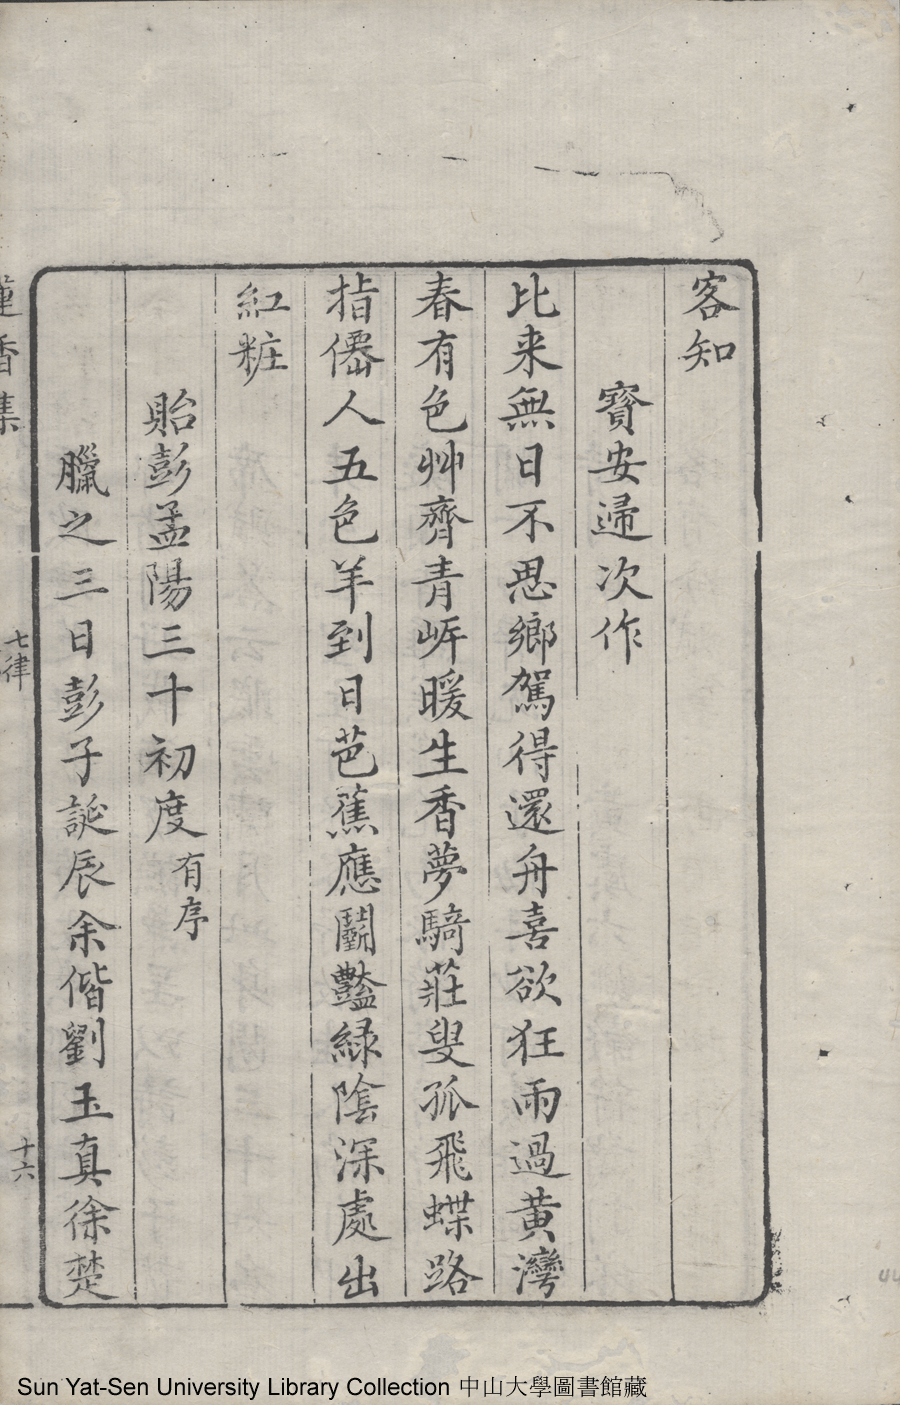 客知
寳安歸次作
比来無日不思鄉駕得還舟喜欲狂雨過黄灣
春有色艸齊青㟁暖生香夢騎莊叟孤飛蝶路
指僊人五色羊到日芭蕉應鬭豔緑陰深處出
紅粧
貽彭孟陽三十初度有序
臘之三日彭子誕辰余偕劉玉真徐楚
蓮香集
七律
十六
Sun Yat-Sen University Library Collection 中山大學圖書館藏